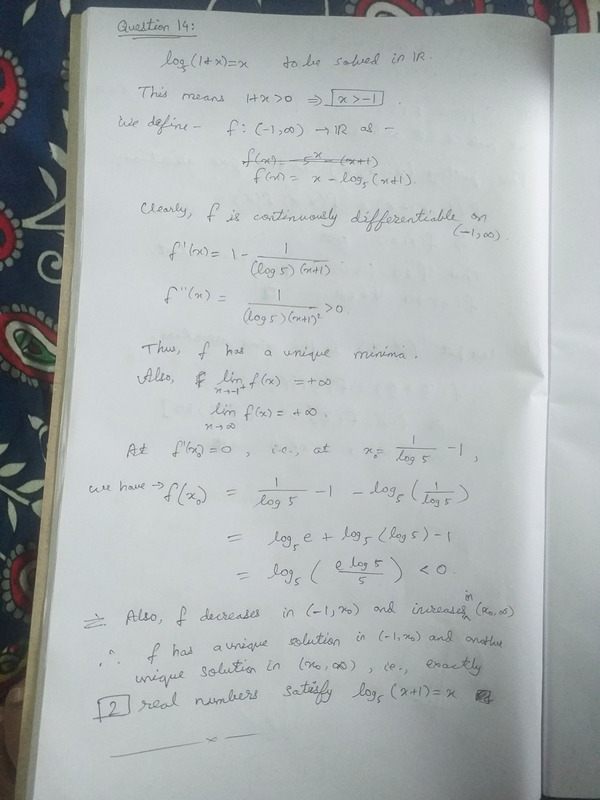 Question 14:
log₅(1+x)=x to be solved in ℝ.
This means 1+x>0 ⇒ x>-1.
We define - f: (-1,∞) → ℝ as -
f(x) = 5^x - (x+1)
f(x) = x - log₅(x+1).
Clearly, f is continuously differentiable on
(-1,∞).
f'(x) = 1 - 1/((log 5)(x+1)).
f''(x) = 1/((log 5)(x+1)²) > 0.
Thus, f has a unique minima.
Also, lim x→-1⁺ f(x) = +∞
lim x→∞ f(x) = +∞.
At f'(x₀)=0, i.e., at x₀ = 1/log 5 - 1,
we have → f(x₀) = 1/log 5 - 1 - log₅(1/log 5)
= log₅ e + log₅(log 5) - 1
= log₅(e log 5/5) < 0.
Also, f decreases in (-1,x₀) and increases in (x₀,∞)
∴ f has a unique solution in (-1,x₀) and another
unique solution in (x₀,∞), i.e., exactly
2 real numbers satisfy log₅(x+1)=x
x